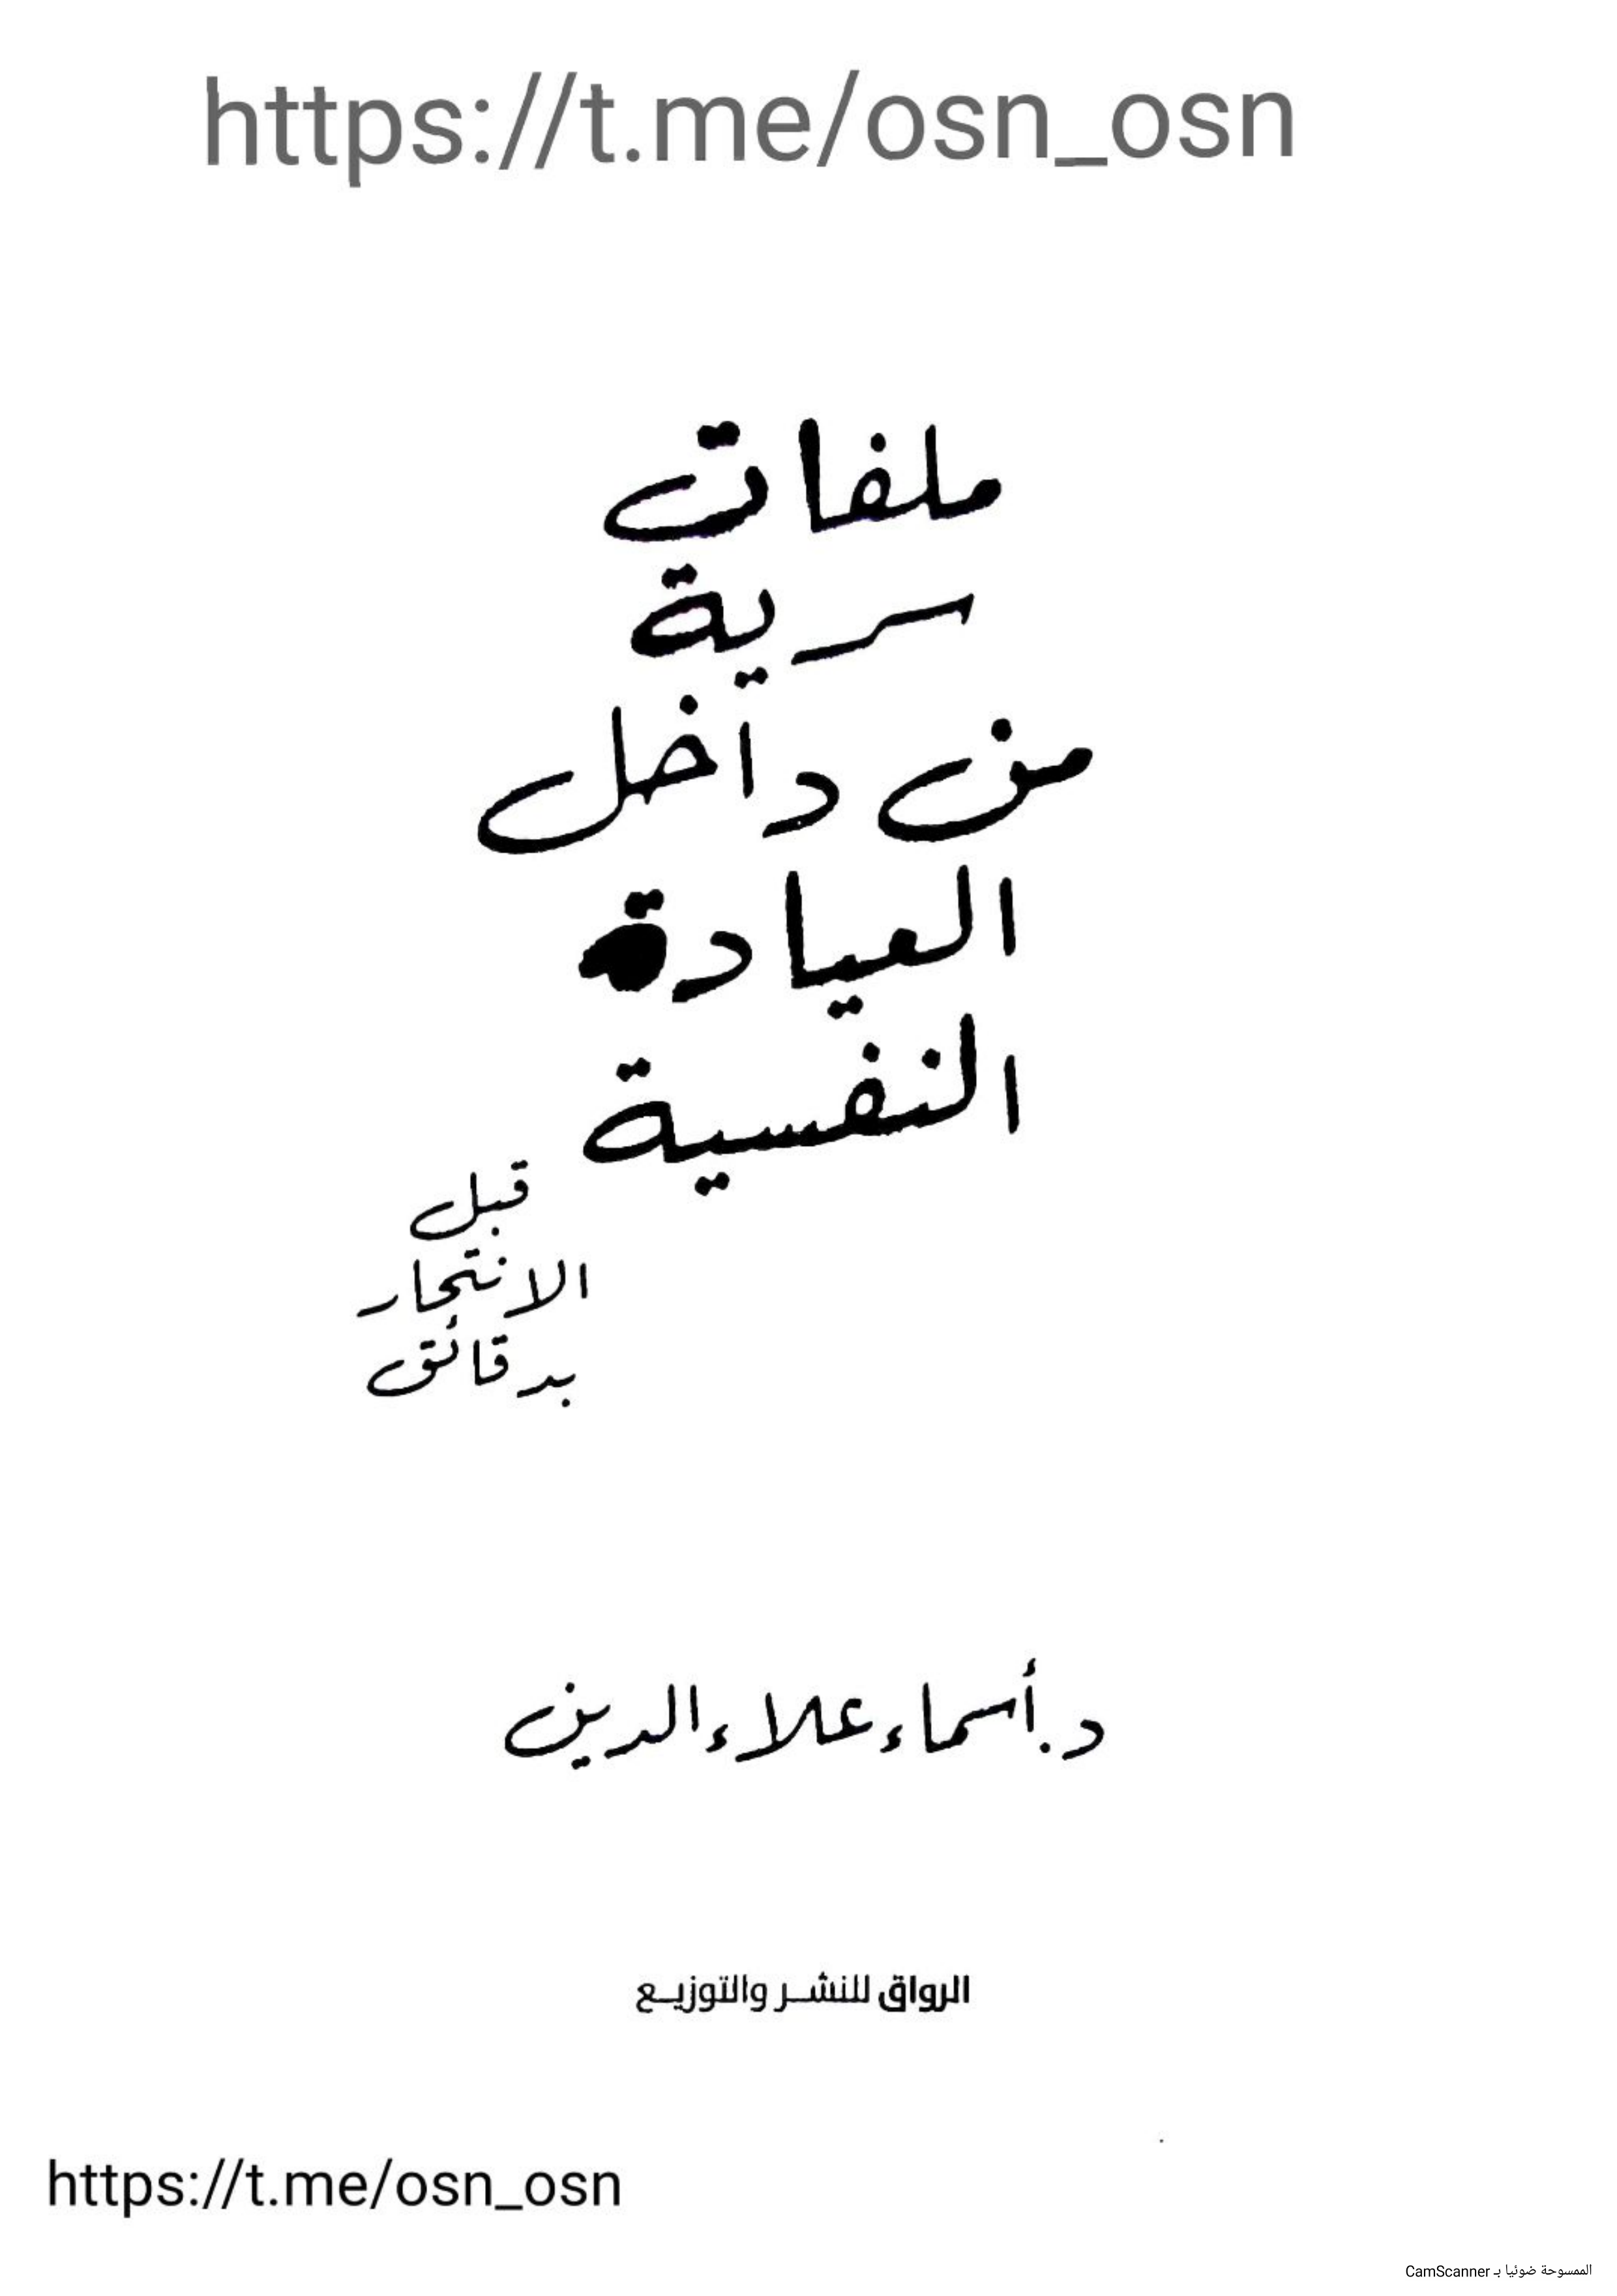 https://t.me/osn_osn
ملفات
سرية
من داخل
العيادة
النفسية
قبل
الانتحار
بدقائق
د. أسماء علاء الدين
الرواق للنشر والتوزيع
https://t.me/osn_osn
الممسوحة ضوئيا بـ CamScanner